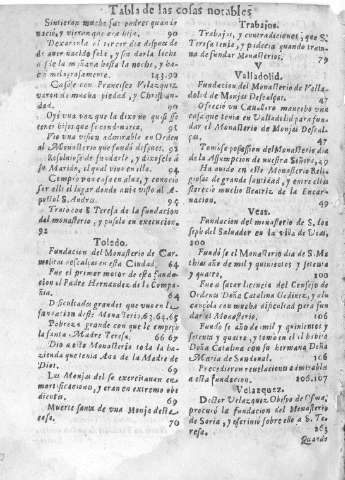 Tabla de las cosas notables
Sintieron mucho sus padres quando
naciò, y vieron que era hija. 90
Dexaronla el tercer dia despues de
de aver nacido sola, y sin darla leche
desde la mañana hasta la noche, y ha-
blò milagrosamente. 143. 90
Casose con Francisco Velazquez
varon de mucha piedad, y Christian-
dad. 90
Oyò una voz que la dixo no quisiesse
tener hijos que se condenaria. 91
Viò una vision admirable en Orden
al Monasterio que fundò despues. 92
Resolviose de fundarle, y dixoselo à
su Marido, el qual vino en ello. 94
Compraron casa en alva, y conociò
ser alli el lugar donde avia visto al A-
postol S. Andres. 95
Tratò con S. Teresa de la fundacion
del monasterio, y pusolo en execucion.
92
Toledo.
Fundacion del Monasterio de Car-
melitas descalças en esta Ciudad. 64
Fue el primer motor de esta funda-
cion el Padre Hernandez de la Compa-
ñia. 64
Dificultades grandes que tuvo en la
fundacion deste Monasterio. 63. 64. 65
Pobreza grande con que le empeçò
la santa Madre Teresa. 66 67
Diò a este Monasterio toda la ha-
zienda que tenia Ana de la Madre de
Dios. 69
Las Monjas del se exercitavan en
mortificaciones, y eran en extremo obe-
dientes. 69
Muerte santa de una Monja deste
caso. 70
Trabajos.
Trabajos, y contradiciones, que S.
Teresa tenia, y padecia quando trata-
va de fundar Monasterios. 79
V
Valladolid.
Fundacion del Monasterio de Valla-
dolid de Monjas Descalças. 47
Ofreciò un Cavallero mancebo una
casa que tenia en Valladolid para fun-
dar el Monasterio de Monjas Descal-
ças. 47
Tomose possession del Monasterio dia
de la Assumpcion de nuestra Señora. 49
Ha avido en este Monasterio Reli-
giosas de grande santidad, y entre ellas
floreciò mucho Beatriz de la Encar-
nacion. 49
Veas.
Fundacion del monasterio de S. Jo-
seph del Salvador en la villa de Veas,
100
Fundòse el Monasterio dia de S. Ma-
thias año de mil y quinientos y setenta
y quatro. 100
Fue a sacar licencia del Consejo de
Ordenes Doña Catalina Godinez, y al-
cançola con mucha dificultad para fun-
dar el Monasterio. 106
Fundòse año de mil y quinientos y
setenta y quatro, y tomò en el el habito
Doña Catalina con su hermana Doña
Maria de Sandoval. 106
Precedieron revelaciones admirables
a esta fundacion. 106. 107
Velazquez.
Doctor Velazquez Obispo de Osma,
procurò la fundacion del Monasterio
de Soria, y escriviò sobre ello a S. Te-
resa. 263
Quando